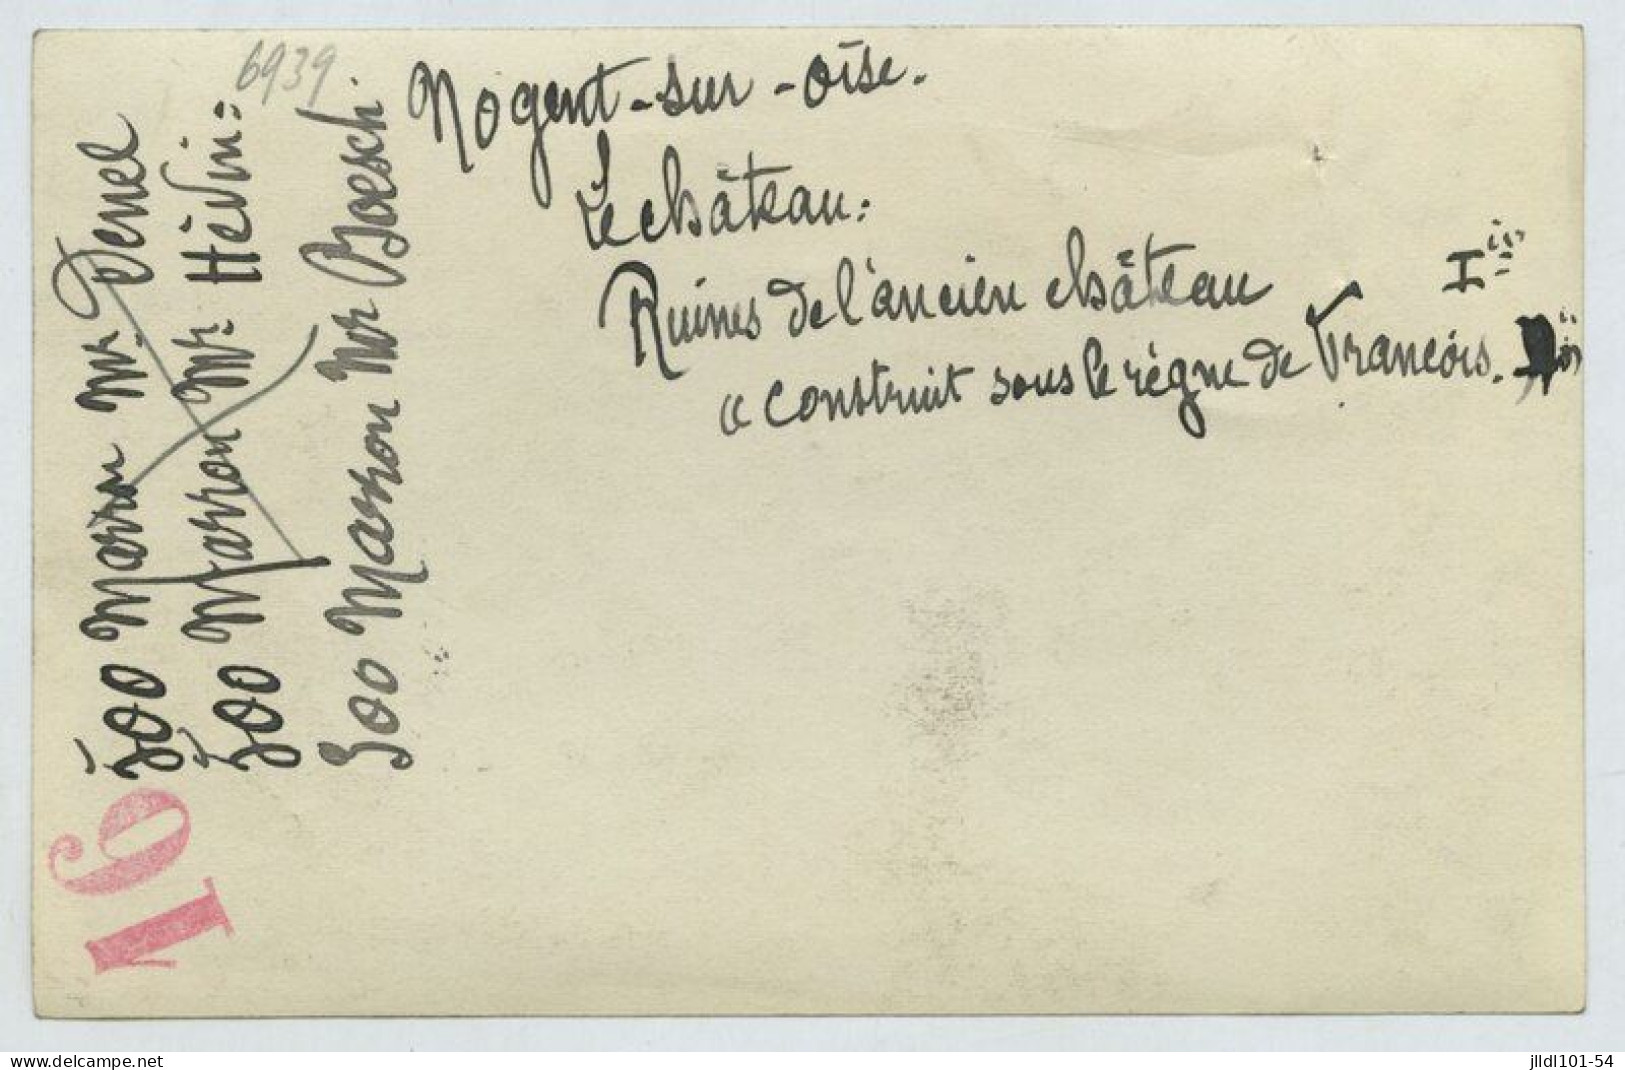 6939
Nogent-sur-Oise.
Le château:
Ruines de l'ancien château
Iᵉʳ
« construit sous le règne de François.
300 Marron Mr.
300 Marron Mr. Hévin:
300 Marron Mr Boesch.
16
www.delcampe.net
jlldl101-54